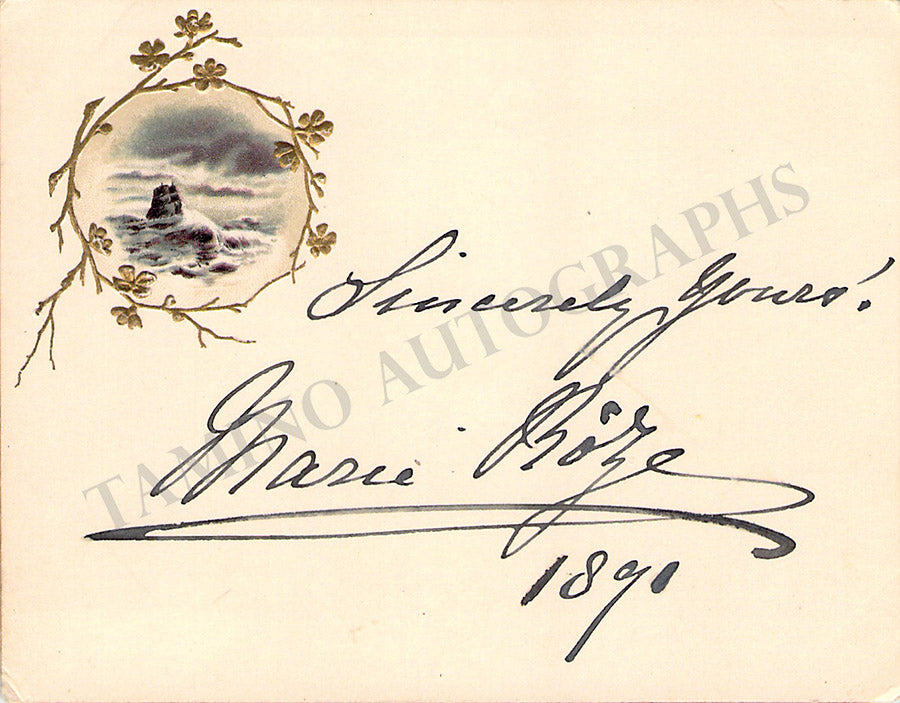 Sincerely yours!
Marie Rôze
1891
TAMINO AUTOGRAPHS